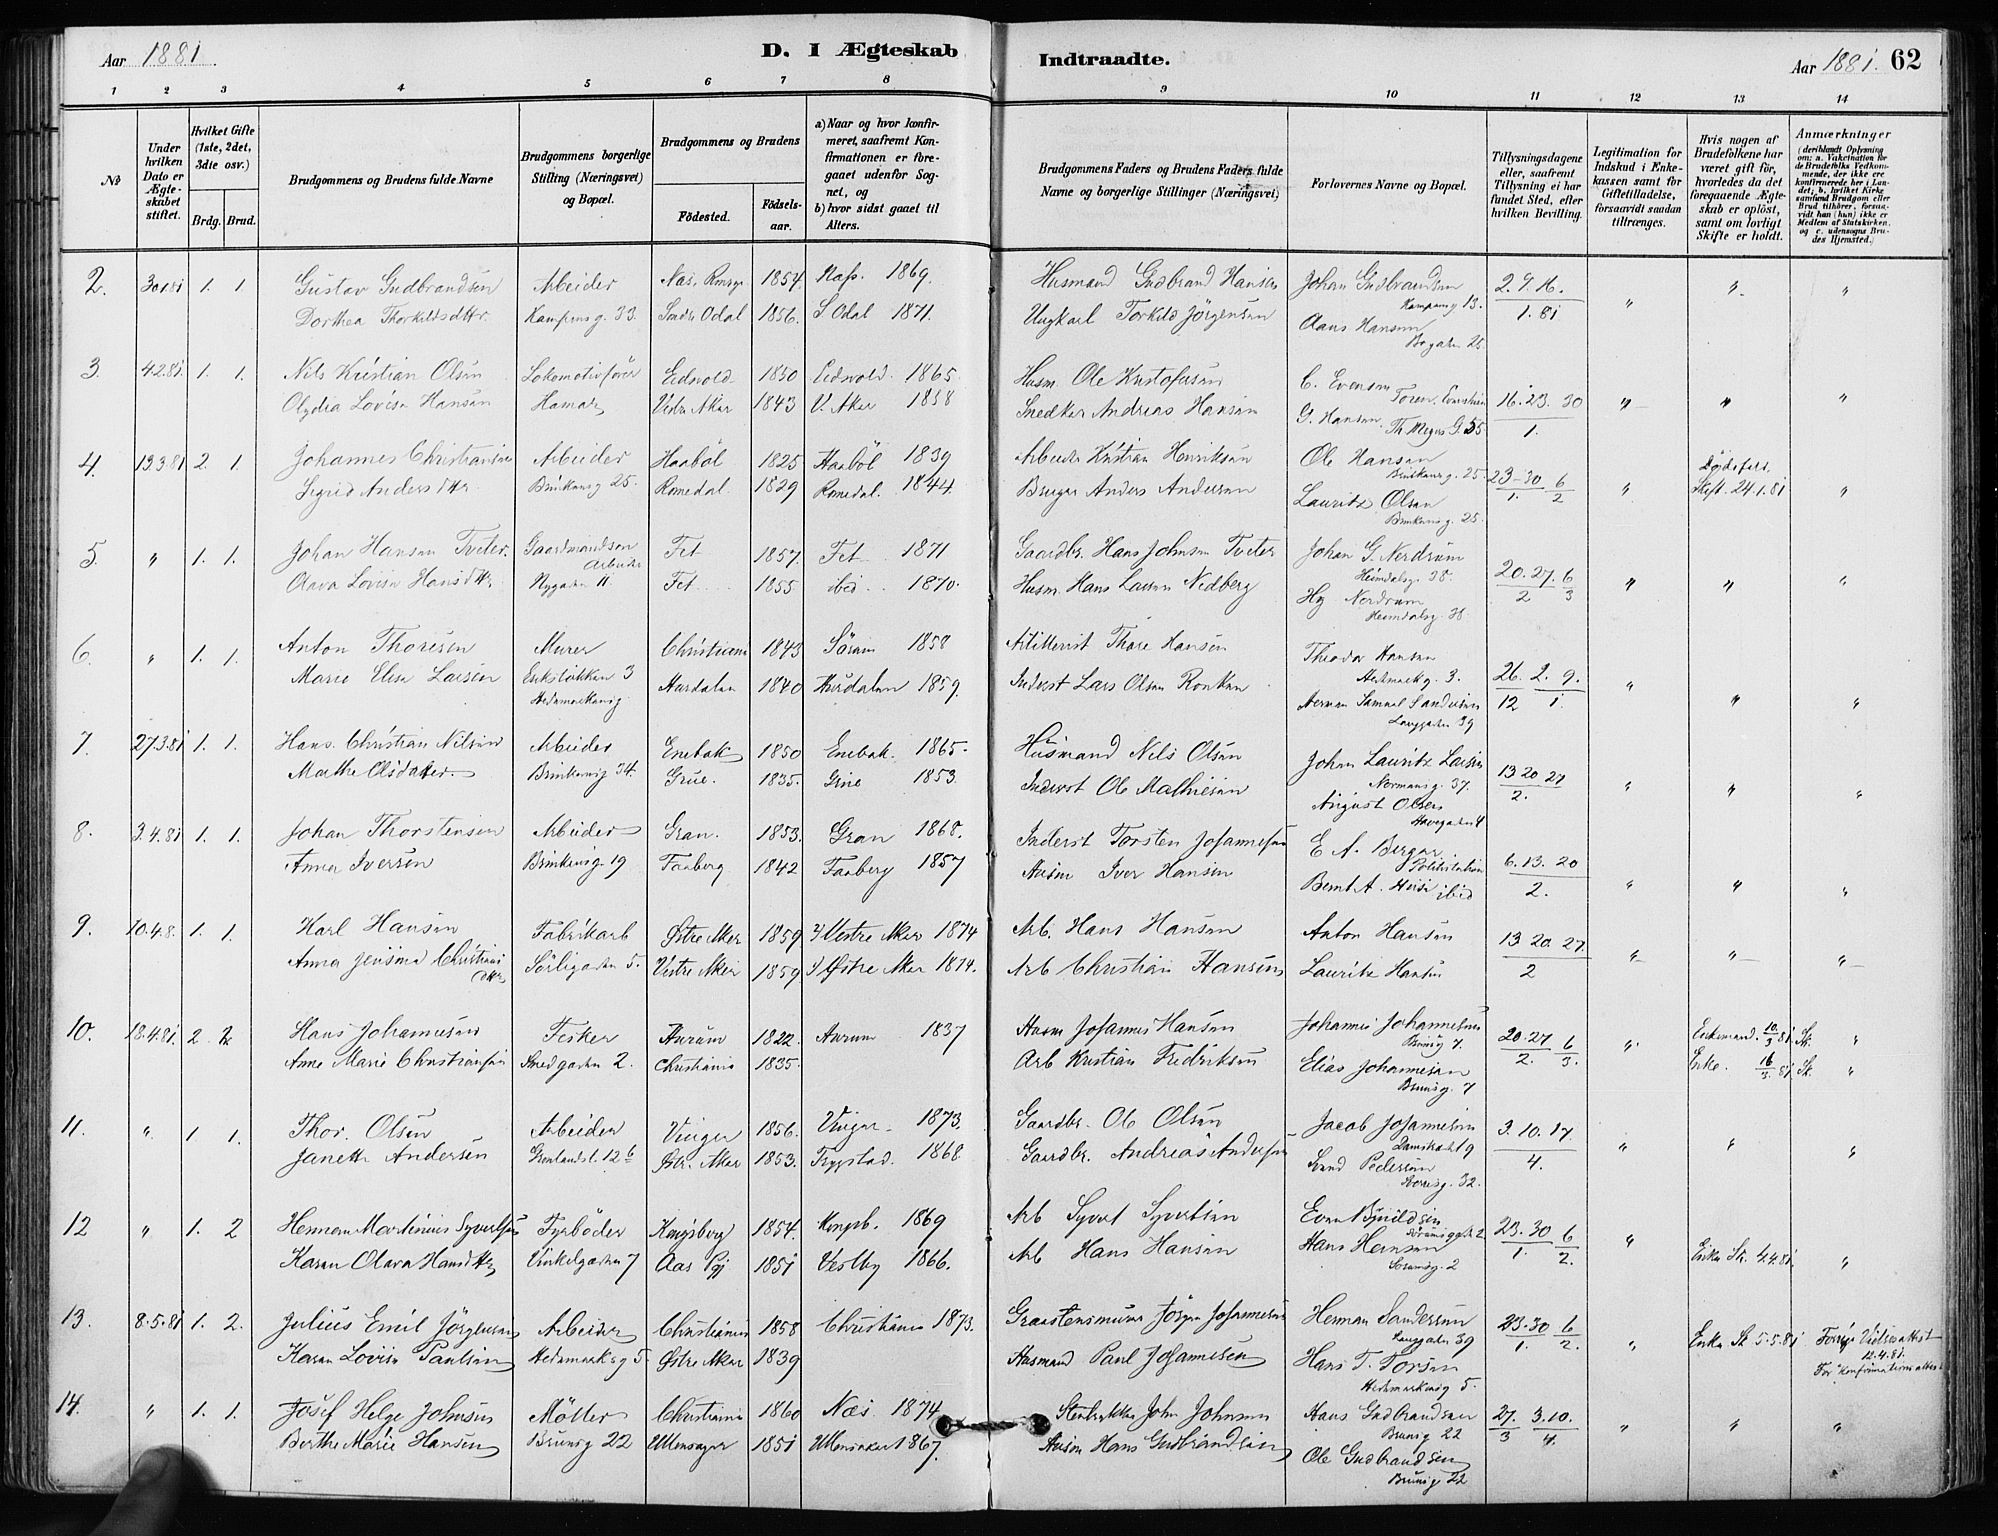 Aar 1881. D. I Ægteskab Indtraadte. Aar 1881. 62
1 2 3 4 5 6 7 8 9 10 11 12 13 14
No
Under hvilken Dato er Ægteskabet stiftet.
Hvilket Gifte (1ste, 2det, 3die osv.)
Brdg. Brud.
Brudgommens og Brudens fulde Navne
Brudgommens borgerlige Stilling (Næringsvei) og Bopæl.
Brudgommens og Brudens
Fødested. Fødselsaar.
a) Naar og hvor konfirmeret, saafremt Konfirmationen er foregaaet udenfor Sognet, og
b) hvor sidst gaaet til Alters.
Brudgommens Faders og Brudens Faders fulde Navne og borgerlige Stillinger (Næringsvei)
Forlovernes Navne og Bopæl.
Tillysningsdagene eller, saafremt Tillysning ei har fundet Sted, efter hvilken Bevilling.
Legitimation for Indskud i Enkekassen samt for Giftetilladelse, forsaavidt saadan tiltrænges.
Hvis nogen af Brudefolkene har været gift før, hvorledes da det foregaaende Ægteskab er opløst, samt om lovligt Skifte er holdt.
Anmærkninger (deriblandt Oplysning om: a. Vakcination for de Brudefolks Vedkommende, der ikke ere konfirmerede her i Landet; b. hvilket Kirkesamfund Brudgom eller Brud tilhører, forsaavidt han (hun) ikke er Medlem af Statskirken, og c. udensogns Brudes Hjemsted.)
2. 30.1.81 1. 1 Gustav Gudbrandsen Arbeider 1854. 1869 Husmand Gudbrand Hansen Johan Gudbrandsen Kampensg 13. 2. 9. 16. " " "
Dorthea Thorkildsdttr. Kampensg. 33. Søndre Odal 1856. S Odal 1871. Ungkarl Torkild Jörgensen Hansen 25 1. 81
3. 4.2.81. 1. 1. Nils Kristian Olsen Lokomotivfører Eidsvold 1850 Eidsvold. 1865. Husm. Ole Kristofersen C. Evensen 16. 23. 30 " " "
Olydia Lovise Hansen Hamar Vestre Aker 1843 V. Aker 1858 Snedker Andreas Hansen G. Hansen Th Meyers G. 55 1.
4. 13.3.81 2. 1. Johannes Christiansen Arbeider Haaböl 1825 Haaböl 1839 Arbeider Kristian Henriksen Ole Hansen Brinkensg. 25. 23-30 6 " Dødsfald. "
Sigrid Andersdttr. Brinkensg 25. Romedal. 1829 Romedal. 1844. Bruger Anders Andersen Lauritz Olsen Brinkensg. 25. 1. 2 Skift. 24.1.81
5. " 1. 1. Johan Hansen Tveter. Gaardmandssøn Arbeider Fet 1857. Fet 1871 Gaardbr. Hans Johnsen Tveter Johan G. Nordrum Heimdalsg. 38. 20. 27. 6 " " "
Olava Lovise Hansdttr. Nygaden 11 Fet 1855 ibid 1870. Husm. Hans Larsen Nedberg Nordrum Heimdalsg. 38. 2 3
6. " 1. 1. Anton Thoresen Murer Christiania 1843 Sörum 1858 Artillerist Thore Hansen Theodor Hansen Hedmarkg. 3. 26. 2. 9. " " "
Marie Elise Larsen Enksløkken 3 Hedemarkensg Hurdalen 1840 Hurdalen 1859. Inderst Lars Olsen Herman Samuel Sandersen Langgaden 39 12 1.
7. 27.3.81 1. 1. Hans Christian Nilsen Arbeider Enebak 1850 Enebak. 1865. Husmand Nils Olsen Johan Lauritz Larsen Normansg. 37. 13 20 27 " " "
Marthe Olsdatter. Brinkensg 34. Grue. 1835. Grue 1853 Inderst Ole Mathiesen August Olsen Havegaden 4 2.
8. 3.4.81 1. 1. Johan Thorstensen Arbeider Gran. 1853. Gran 1868. Inderst Torsten Johannesen E A. Berger Politistation 6. 13. 20 " " "
Anna Iversen Brinkensg. 19 Faaberg 1842 Faaberg 1857 Husm Iver Hansen Bernt A. ibid 2.
9. 10.4.8. 1. 1. Karl Hansen Fabrikarb Østre Aker 1859 Vestre Aker 1874 Arb. Hans Hansen Anton Hansen 13 20. 27 " " "
Anna Jensine Christiansdttr Sørligaden 5. Vestre Aker 1859 Østre Aker 1874. Arb Christian Hansen Lauritz Hansen 2
10. 18.4.81. 2 2 Hans Johannesen Fisker Aurum 1822. Aurum 1837 Husm Johannes Hansen Johannes Johannesen Brunsg 7. 20-27 6 " Enkemand. 10/3 81. Sk. "
Anne Marie Christiansen Smedgaden 2. Christiania 1835. Arb Kristian Fredriksen Elias Johannesen Brunsg. 7 2. 3. Enke. 16/3. 81. Sk. "
11. " 1. 1. Thor. Olsen Arbeider Vinger 1856. Vinger 1873. Gaardbr. Ole Olsen Jacob Johannesen 3. 10. 17. " " "
Janette Andersen Grønlandsl. 12 Østre Aker 1853. Trygstad. 1868. Gaardbr. Andreas Andersen Svend Pedersen 32. 4.
12 " 1. 2 Herman Martinius Syvertsen Fyrbøder Kongsberg 1854. Kongsb. 1869 Arb Syvert Syvertsen Even 23. 30 6 "
Karen Olava Hansdtter Vinkelgaden 7 Aas Pgj 1851 Vestby 1866. Arb Hans Hansen Hans Hansen Sørumsg. 2 1. 2. Enke Sk. 4.4.81. "
13. 8.5.81 1. 2. Julius Emil Jörgensen Arbeider Christiania 1858 Christiania 1873. Graastensmurer Jörgen Johannesen Herman Sandersen Langgaden 39 23. 30 6 " Enke Sk 5.5.81
Karen Lovise Paulsen Hedemarksg 5. Østre Aker 1839 Husmand Paul Johannesen Hans T. Torsen Hedemarkensg 5. 1. 2. 12.4.81. For Konfirmationsattest
14. " 1. 1. Josef Helge Johnsen Møller Christiania 1860 Næs. 1874. Stenhykker John Johnsen Hans Gudbrandsen Brunsg 22 27. 3. 10. " " "
Berthe Marie Hansen Brunsg 22 Ullensager 1851 Ullensaker 1867. Husm Hans Gudbrandsen Ole Gudbrandsen Brunsg 22 3 4.